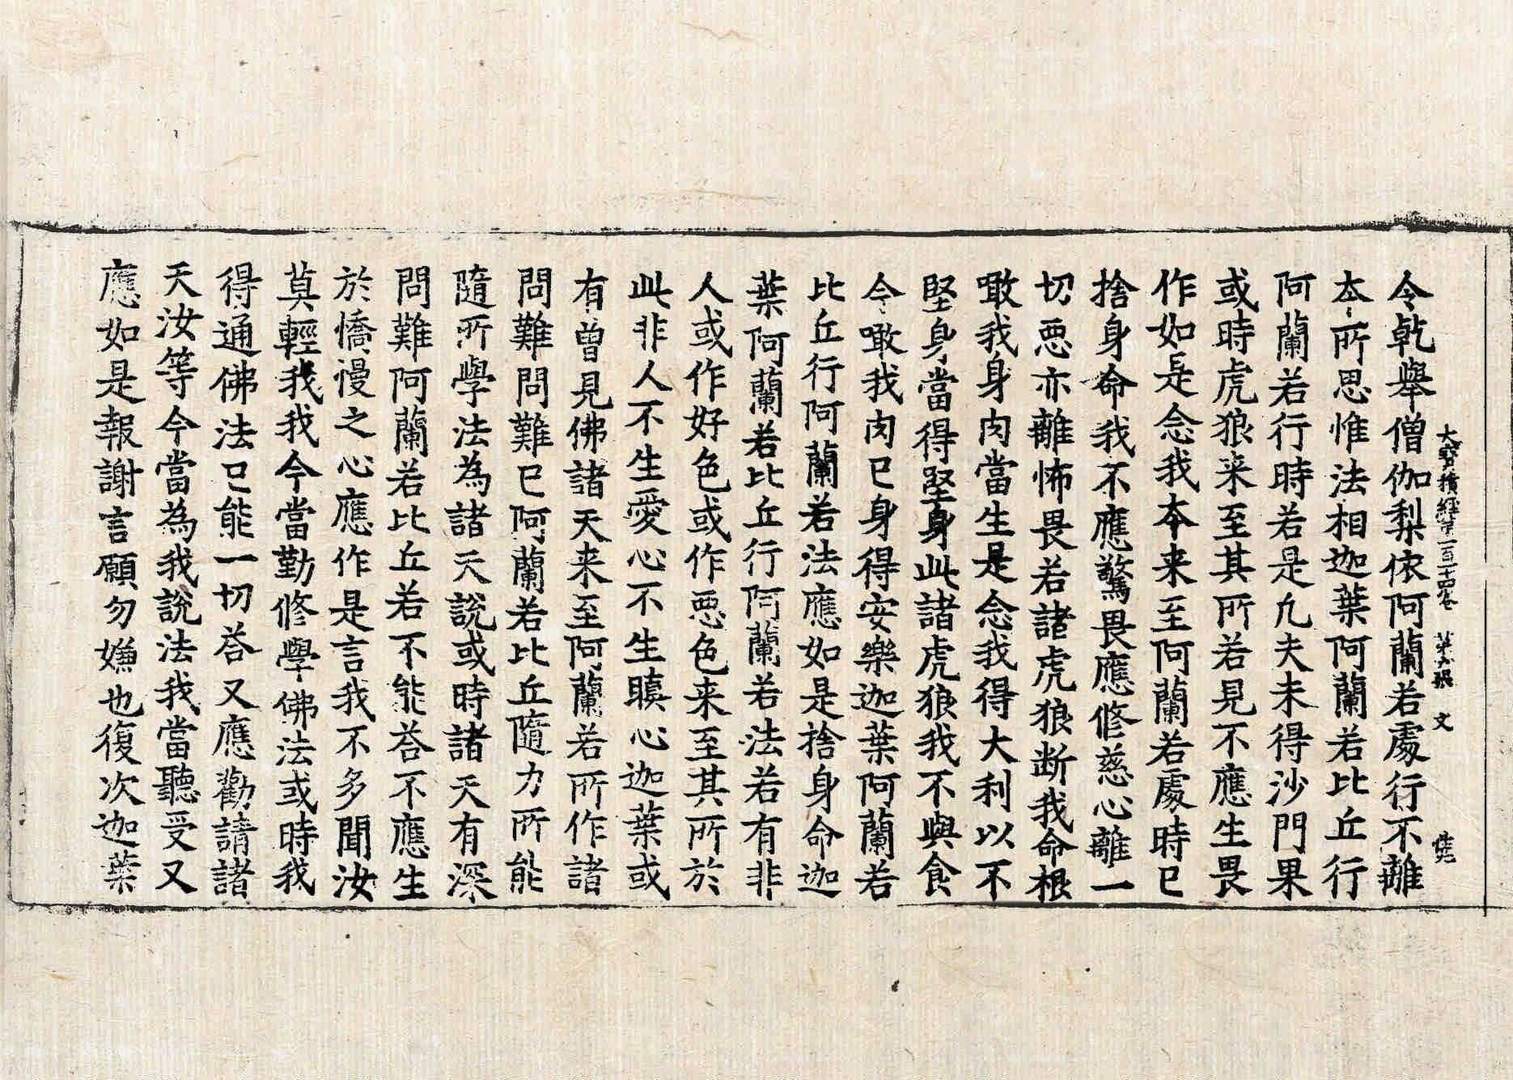 大寶積經第一百一十四卷 第六張 文
令乾舉僧伽梨依阿蘭若處行不離
本所思惟法相迦葉阿蘭若比丘行
阿蘭若行時若是凢夫未得沙門果
或時虎狼来至其所若見不應生畏
作如是念我本来至阿蘭若處時已
捨身命我不應驚畏應修慈心離一
切惡亦離怖畏若諸虎狼断我命根
噉我身肉當生是念我得大利以不
堅身當得堅身此諸虎狼我不與食
今噉我肉已身得安樂迦葉阿蘭若
比丘行阿蘭若法應如是捨身命迦
葉阿蘭若比丘行阿蘭若法若有非
人或作好色或作惡色来至其所於
此非人不生愛心不生瞋心迦葉或
有曾見佛諸天来至阿蘭若所作諸
問難問難已阿蘭若比丘隨力所能
隨所學法為諸天說或時諸天有深
問難阿蘭若比丘若不能荅不應生
於憍慢之心應作是言我不多聞汝
莫輕我我今當勤修學佛法或時我
得通佛法已能一切荅又應勸請諸
天汝等今當為我說法我當聽受又
應如是報謝言願勿嫌也復次迦葉